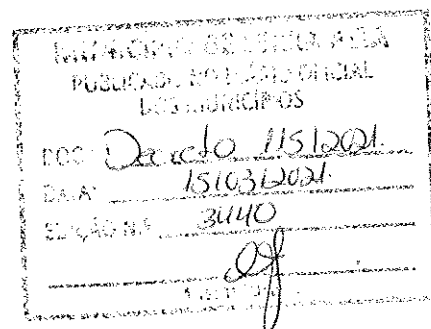 MUNICÍPIO DE
PUBLICADO NO DIÁRIO OFICIAL
DOS MUNICÍPIOS
DOC: Decreto 115/2021.
DATA: 15/03/2021.
EDIÇÃO N.º 3440